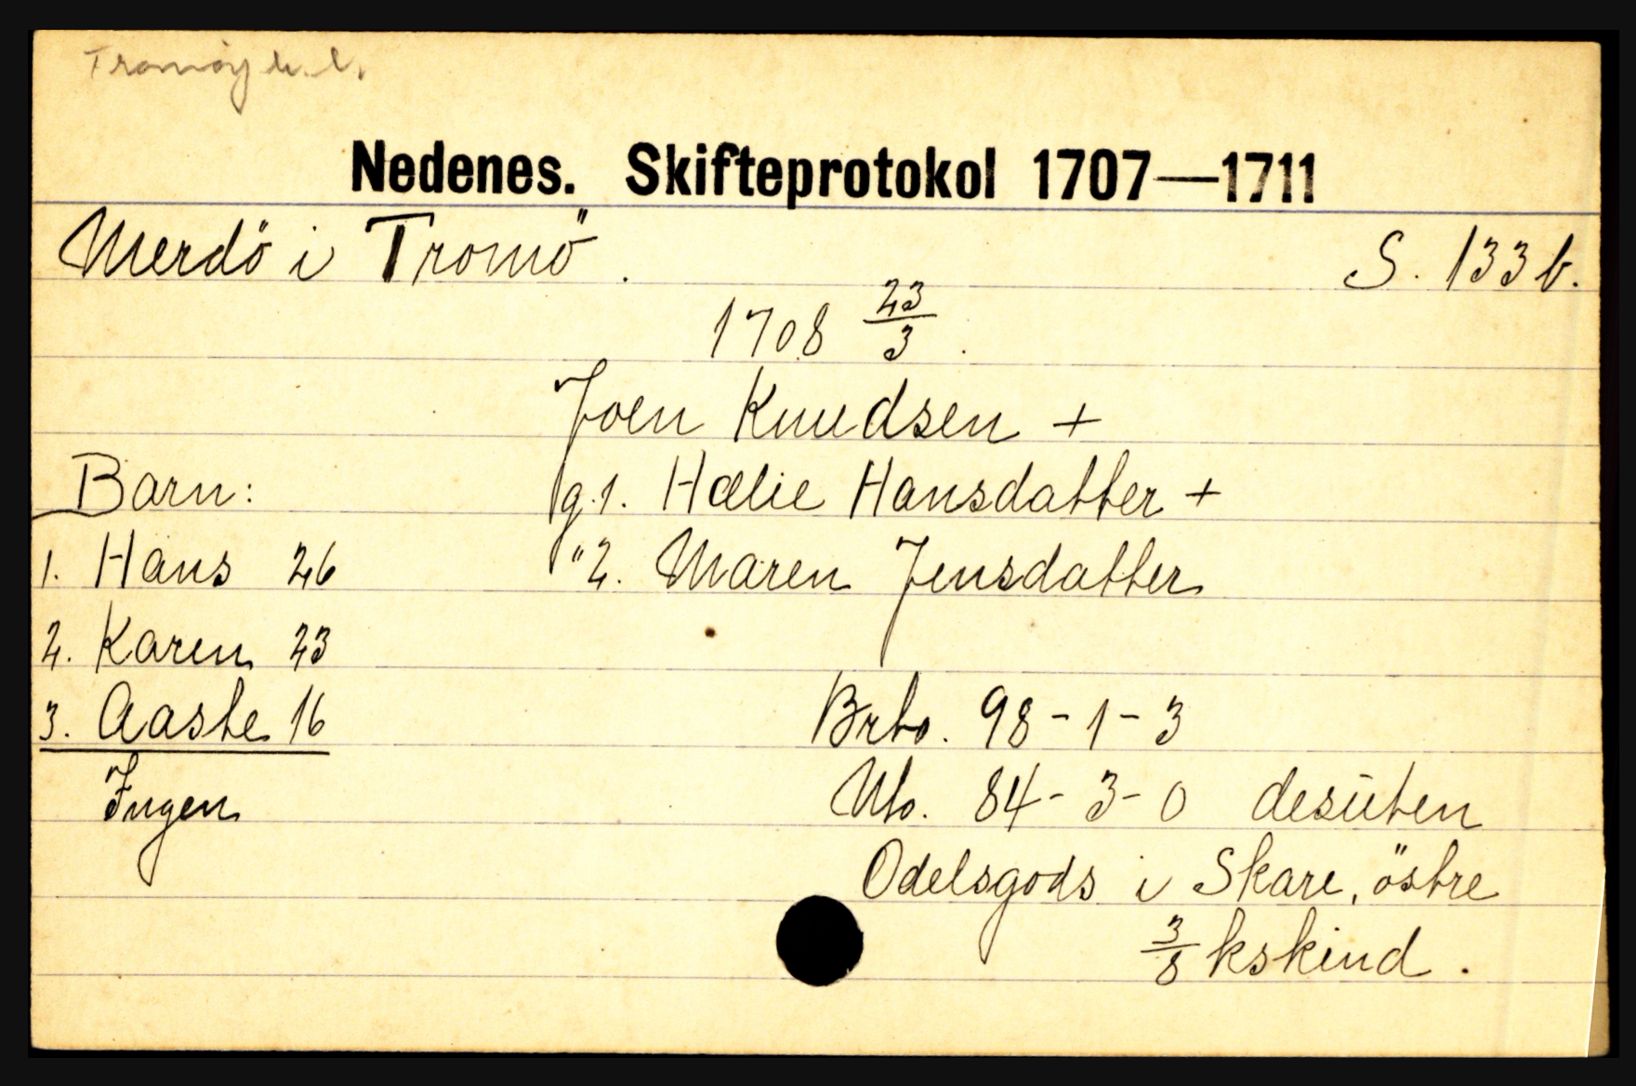 Tromöy
Nedenes. Skifteprotokol 1707—1711
Merdö i Tromö. S. 133 b.
1708 23/3.
Joen Knudsen +
Barn: g. 1. Hælie Hansdatter +
1. Hans 26 " 2. Maren Jensdatter
2. Karen 23
3. Aaste 16 Brto. 98-1-3
Ingen Nto. 84-3-0 desuten
Odelsgods i Skare, östre
3/8 kskind.